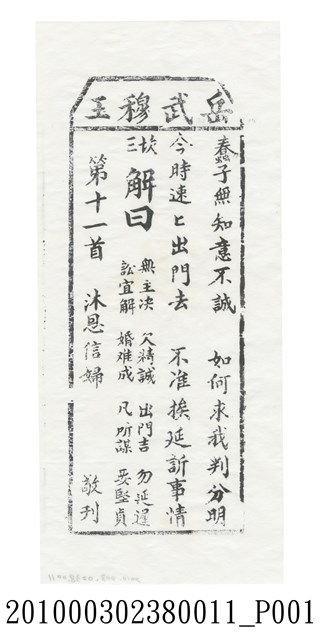 岳武穆王
蠢子無知意不誠 如何求我判分明
今時速匕出門去 不准挨延訴事情
三坎
解曰
無主决 欠精誠 出門吉 勿延遲
訟宜解 婚难成 凡所謀 要堅貞
第十一首 沐恩信婦 敬刋
201000302380011_P001